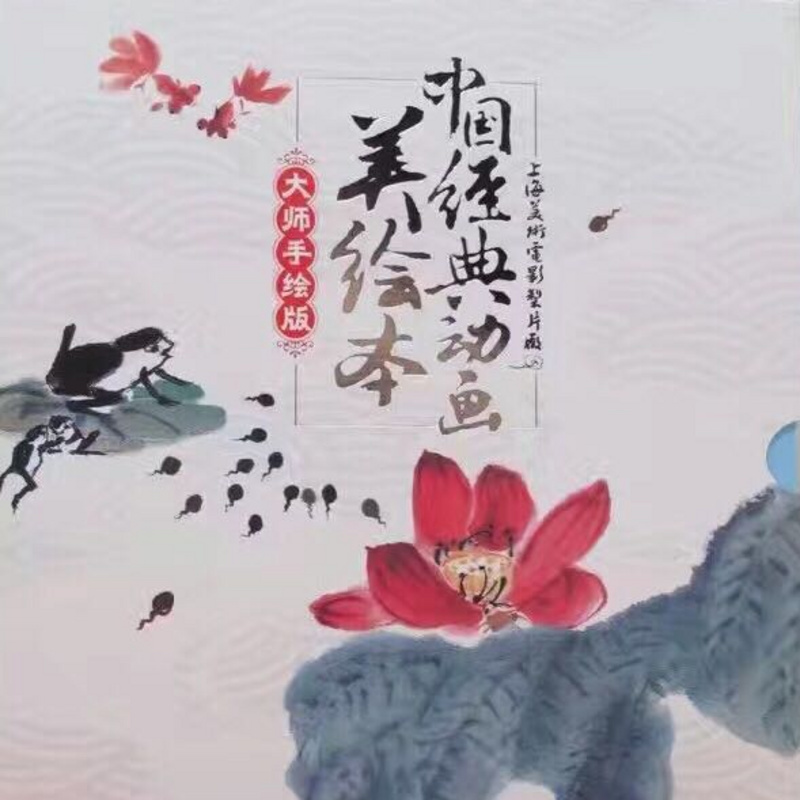 中国经典动画
美绘本
上海美術電影製片廠
大师手绘版